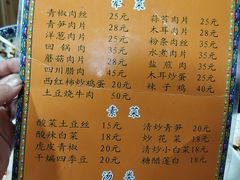 荤菜
青椒肉丝 25元
青笋肉片 25元
洋葱肉片 25元
回锅肉 35元
蘑菇肉片 28元
四川腊肉 45元
西红柿炒鸡蛋 20元
土豆烧牛肉
蒜苔肉片 28元
木耳肉片 28元
粉条肉丝 28元
水煮肉片 35元
盐煎肉 35元
木耳炒蛋 25元
辣子鸡 40元
素菜
酸菜土豆丝 15元
酸辣白菜 18元
虎皮青椒 20元
干煸四季豆 20元
清炒青笋 20元
炒花菜 18元
清炒小白菜 18元
糖醋莲白 18元
汤类